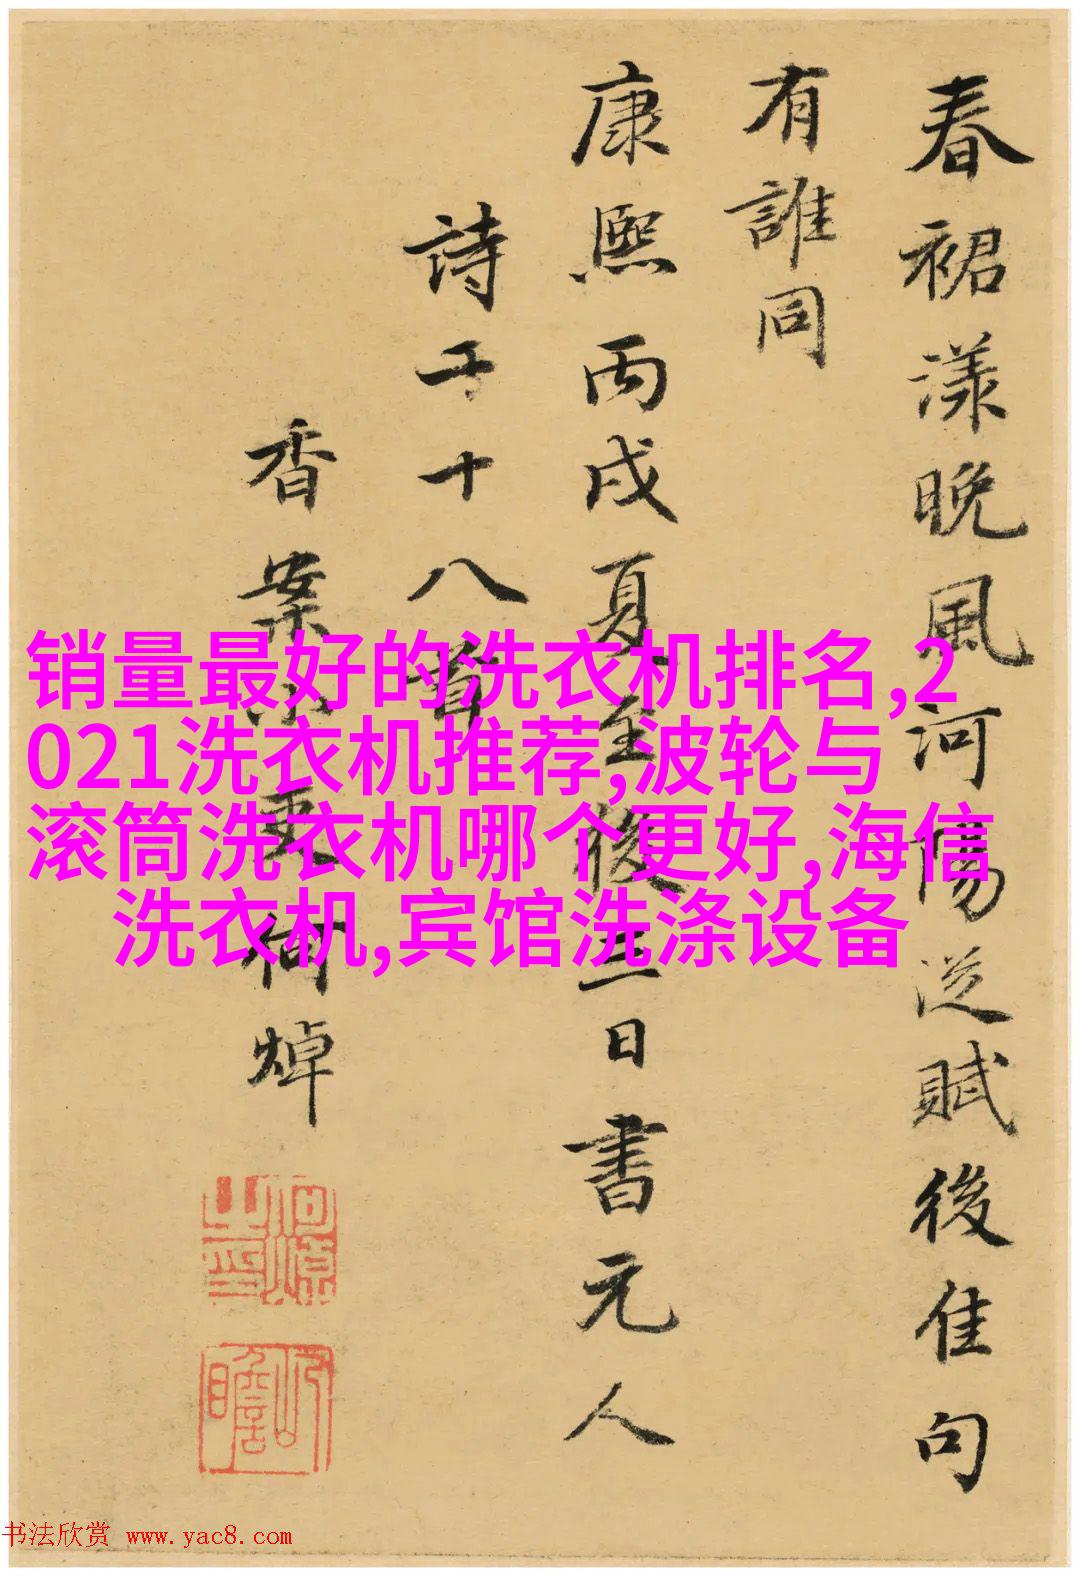 春裙漾晚風河陽從賦後佳句
有誰同
康熙丙戌夏至後三日書元人
詩二十八首
香案小吏何焯
销量最好的洗衣机排名,2
021洗衣机推荐,波轮与
滚筒洗衣机哪个更好,海信
洗衣机,宾馆洗涤设备
书法欣赏 www.yac8.com